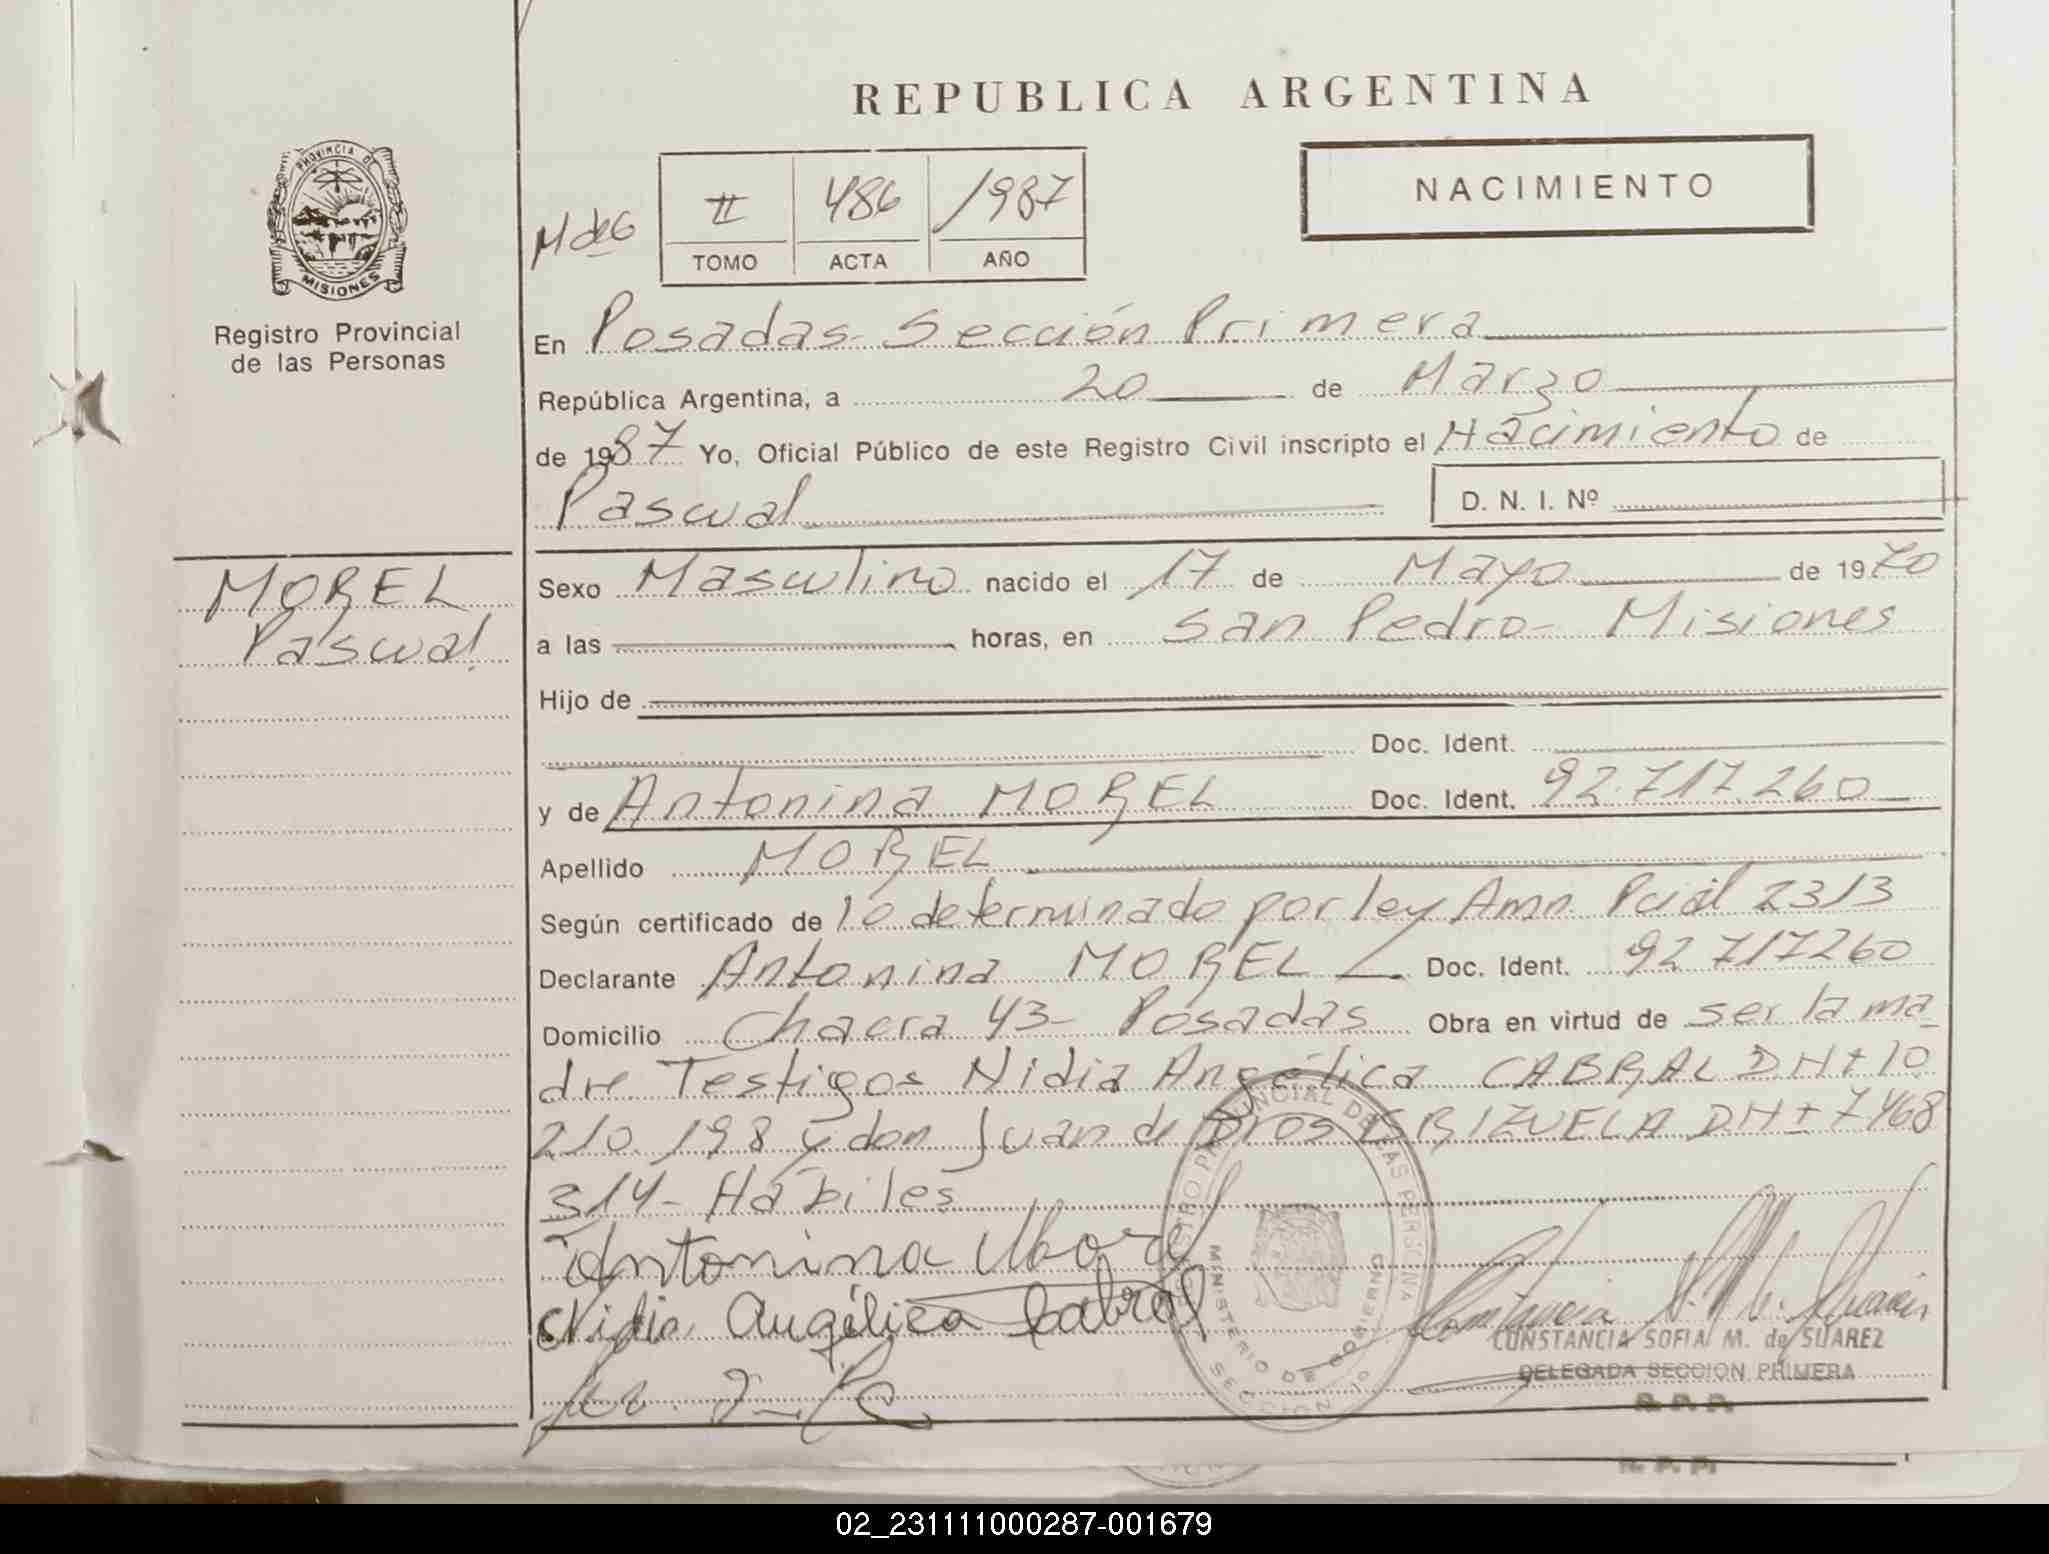 REPUBLICA ARGENTINA
PROVINCIA DE
MISIONES
Registro Provincial
de las Personas
M de G
II 486 1987
TOMO ACTA AÑO
NACIMIENTO
En Posadas - Sección Primera
República Argentina, a 20 de Marzo
de 1987 Yo, Oficial Público de este Registro Civil inscripto el Nacimiento de
Pascual D. N. I. Nº
MOREL
Pascual
Sexo Masculino nacido el 17 de Mayo de 1970
a las horas, en San Pedro - Misiones
Hijo de
Doc. Ident.
y de Antonina MOREL Doc. Ident. 92.717.260
Apellido MOREL
Según certificado de lo determinado por ley Amn. Pcial 2313
Declarante Antonina MOREL Doc. Ident. 92 717260
Domicilio Chacra 43 - Posadas Obra en virtud de ser la ma
dre Testigos Nidia Angélica CABRAL DNI 10
210.198 y don Juan de Dios BRIZUELA DNI 7468
314 - Hábiles
Antonina Morel
Nidia Angélica Cabral
REGISTRO PROVINCIAL DE LAS PERSONAS
MINISTERIO DE GOBIERNO
SECCION 1º
CONSTANCIA SOFIA M. de SUAREZ
DELEGADA SECCION PRIMERA
R. P. P.
R. P. P.
02_231111000287-001679